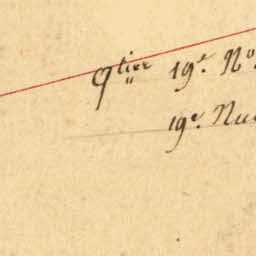 qtier 19e. No.
19e. Nu